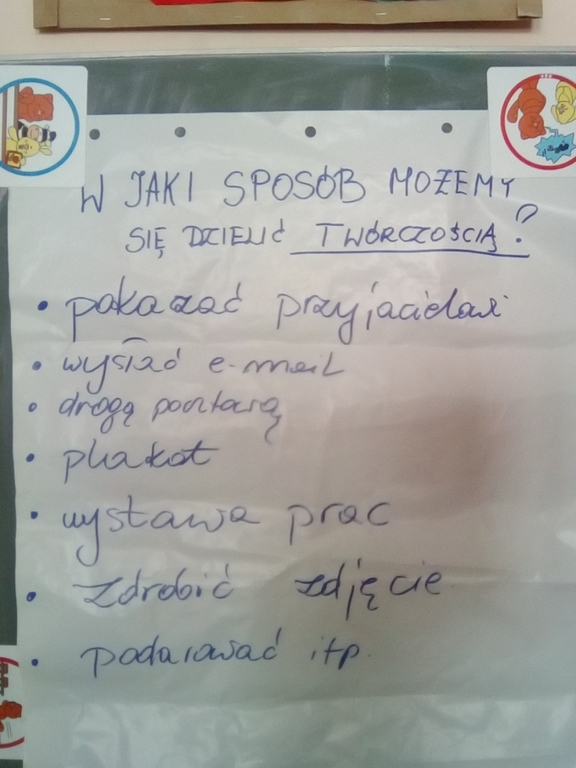 W JAKI SPOSÓB MOŻEMY
SIĘ DZIELIĆ TWÓRCZOŚCIĄ?
• pokazać przyjacielowi
• wysłać e-mail
• drogą pocztową
• plakat
• wystawa prac
• zdrobić zdjęcie
• podarować itp.